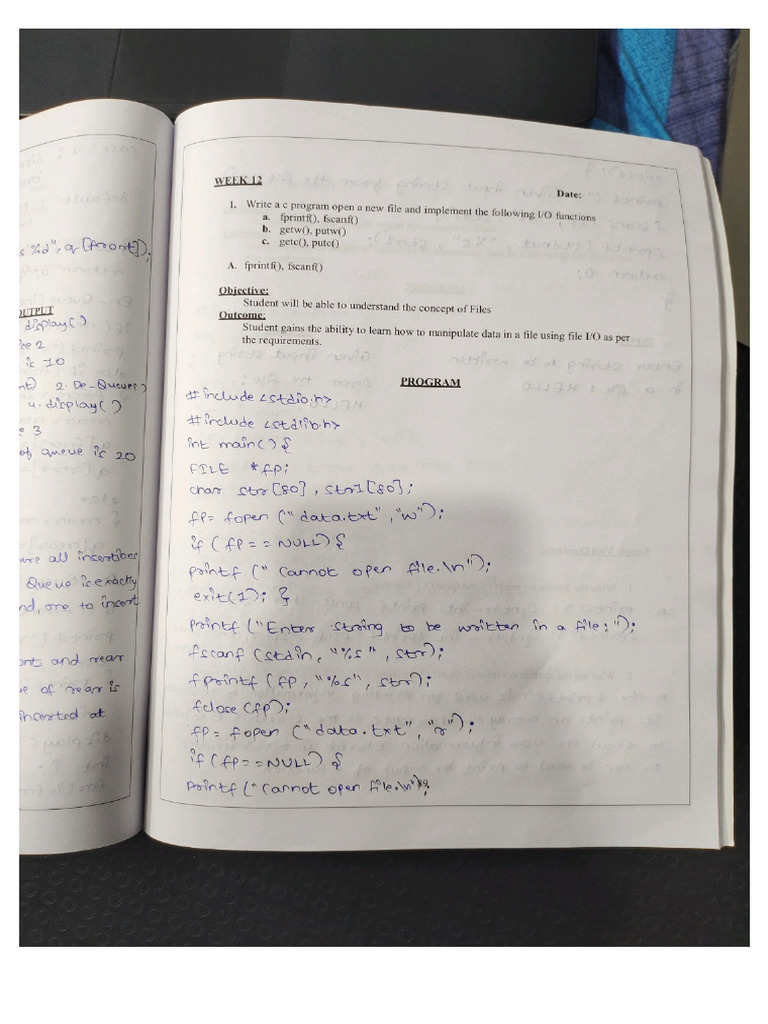 s "%d", q[front]);
OUTPUT
display()
ice 2
is 10
nt) 2. De-Queue()
4. display()
e 3
of queue is 20
are all insertions
Queue is exactly
nd, are to insert
ont and rear
ue of rear is
inserted at
WEEK 12
Date:
1. Write a c program open a new file and implement the following I/O functions
a. fprintf(), fscanf()
b. getw(), putw()
c. getc(), putc()
A. fprintf(), fscanf()
Objective:
Student will be able to understand the concept of Files
Outcome:
Student gains the ability to learn how to manipulate data in a file using file I/O as per
the requirements.
PROGRAM
#include <stdio.h>
#include <stdlib.h>
int main() {
FILE *fp;
char str[80], str1[80];
fp= fopen ("data.txt", "w");
if (fp==NULL) {
printf (" cannot open file.\n");
exit(1); }
printf ("Enter string to be written in a file:");
fscanf (stdin, "%s", str);
fprintf (fp, "%s", str);
fclose (fp);
fp= fopen ("data.txt", "r");
if (fp==NULL) {
printf ("cannot open file.\n");